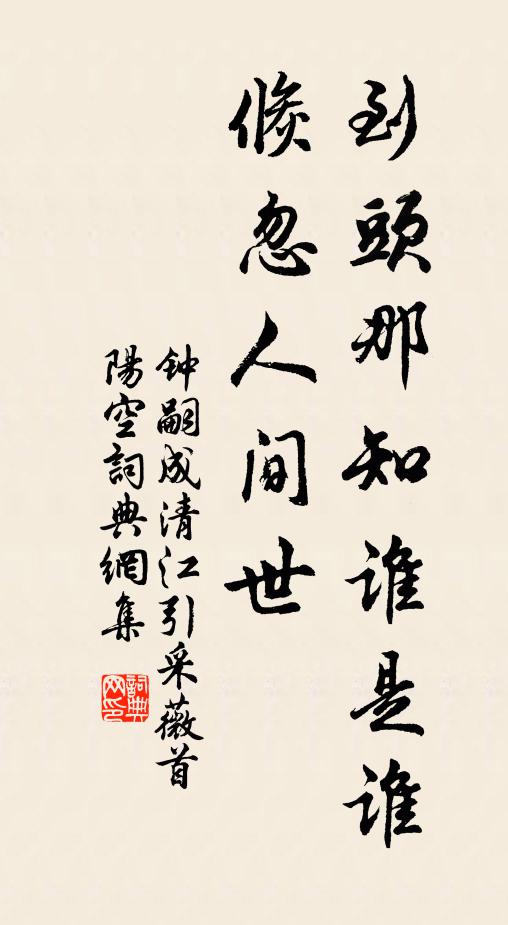 到頭那知誰是誰
倏忽人間世
钟嗣成清江引采薇首
陽空詞典網集
詞典
网印